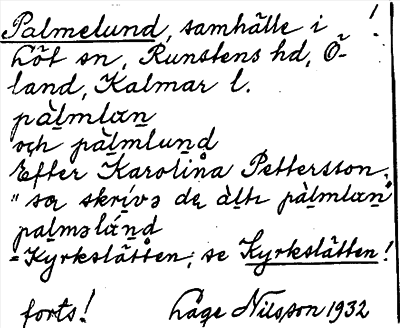 Palmelund, samhälle i !
Löt sn, Runstens hd, Ö-
land, Kalmar l.
pàlmlan
och pàlmlund
Efter Karolina Pettersson.
"sa skrívə da àlt pàlmlan"
palməlánd
=Kyrkslätten; se Kyrkslätten!
forts! Låge Nilsson 1932